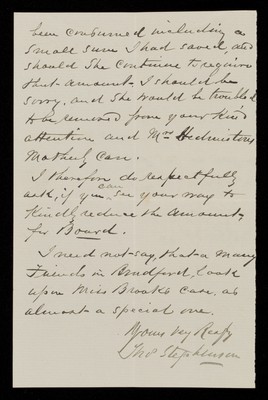 been consumed including a
small sum I had saved and
should she continue to require
that amount, I should be
sorry, and she would be troubled
to be removed from your kind
attention and Mrs
Motherly Care.
I therefore do respectfully
ask, if you can see your way to
kindly reduce the amount
for Board.
I need not say, that a many
Friends in Bradford, look
upon Miss Brooks case, as
almost a special one.
Yours vey Respy
Thos Stephenson